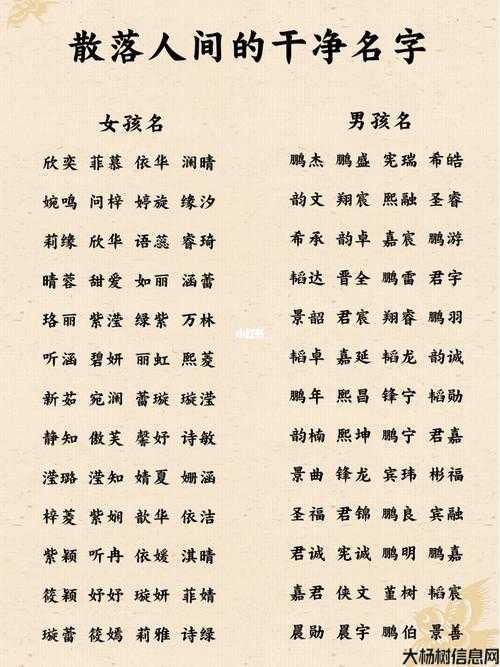 散落人间的干净名字
女孩名
欣奕 菲慕 依华 澜晴
婉鸣 问梓 婷旋 缘汐
莉缘 欣华 语蕊 睿琦
晴蓉 甜爱 如丽 涵蕾
珞丽 紫滢 绿紫 万林
听涵 碧妍 丽虹 熙菱
新茹 宛澜 蕾璇 璇滢
静知 傲芙 馨妤 诗敏
滢璐 滢知 婧夏 姗涵
梓菱 紫娴 歆华 依洁
紫颖 听冉 依媛 淇晴
筱颖 妤妤 璇妍 菲婧
璇蕾 筱嫣 莉雅 诗绿
男孩名
鹏杰 鹏盛 宪瑞 希皓
韵文 翔宸 熙融 圣睿
希承 韵卓 嘉宸 鹏游
韬达 晋全 鹏雷 君宇
景韶 君宸 翔睿 鹏羽
韬卓 嘉延 韬龙 韵诚
鹏年 熙昌 锋宁 韬勋
韵楠 熙坤 鹏宁 君嘉
景曲 锋龙 宾玮 彬福
圣福 君锦 鹏良 宾融
君诚 宪诚 鹏明 鹏嘉
嘉君 侠文 堇树 韬宸
晨勋 晨宇 鹏伯 景善
小红书
大杨树信息网